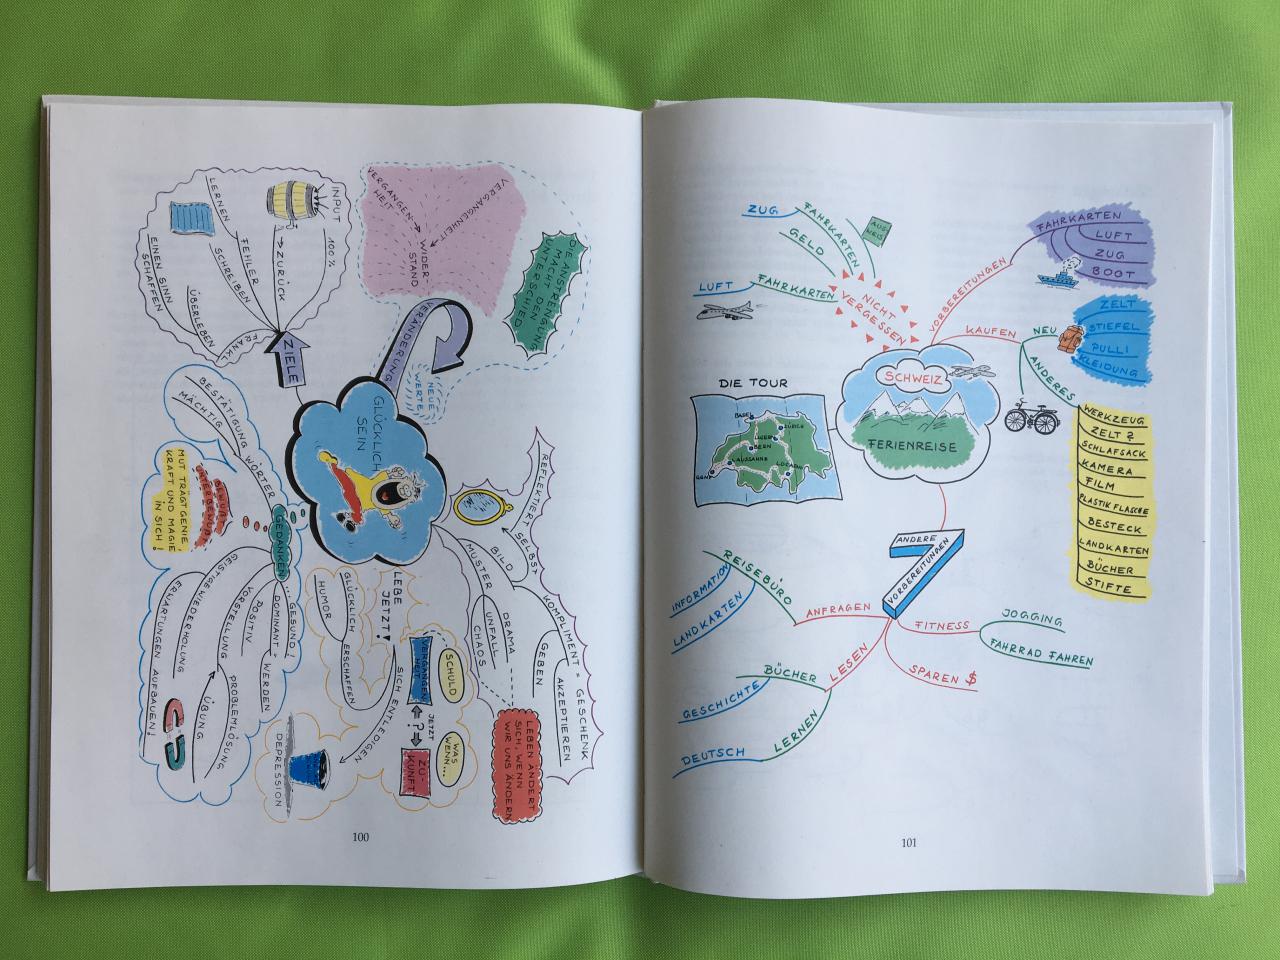 DIE ANSTRENGUNG
MACHT DEN
UNTERSCHIED
VERGANGENHEIT
VERGANGEN-
HEIT
WIDER
STAND
VERÄNDERUNG
NEUE
WERTE
INPUT
100%
→ ZURÜCK
LERNEN
FEHLER
SCHREIBEN
EINEN SINN
SCHAFFEN
ÜBERLEBEN
FRANKL
ZIELE
GLÜCKLICH
SEIN
BESTÄTIGUNG
MÄCHTIG
WÖRTER
GEDANKEN
MUT TRÄGT GENIE,
KRAFT UND MAGIE
IN SICH!
GEISTIGE
WIEDERHOLUNG
ERWARTUNGEN AUFBAUEN!
VORSTELLUNG
POSITIV
PROBLEMLÖSUNG
ÜBUNG
DOMINANT = WERDEN
... GESUND!
LEBE
JETZT!
GLÜCKLICH
HUMOR
ERSCHAFFEN
SICH ENTLEDIGEN
DEPRESSION
SCHULD
VERGANGEN
HEIT
JETZT
?
WAS
WENN...
ZU-
KUNFT
REFLEKTIERT SELBST
BILD
MUSTER
DRAMA
UNFALL
CHAOS
KOMPLIMENT = GESCHENK
GEBEN
AKZEPTIEREN
LEBEN ÄNDERT
SICH, WENN
WIR UNS ÄNDERN
100
ZUG
FAHRKARTEN
AUS-
WEIS
GELD
LUFT
FAHRKARTEN
NICHT
VERGESSEN
VORBEREITUNGEN
FAHRKARTEN
LUFT
ZUG
BOOT
KAUFEN
NEU
ZELT
STIEFEL
PULLI
KLEIDUNG
ANDERES
WERKZEUG
ZELT ?
SCHLAFSACK
KAMERA
FILM
PLASTIK FLASCHE
BESTECK
LANDKARTEN
BÜCHER
STIFTE
SCHWEIZ
FERIENREISE
DIE TOUR
BASEL
ZÜRICH
LUZERN
BERN
LAUSSANNE
LOCARNO
GENF
ANDERE
VORBEREITUNGEN
REISEBÜRO
INFORMATION
LANDKARTEN
ANFRAGEN
FITNESS
JOGGING
FAHRRAD FAHREN
SPAREN $
LESEN
BÜCHER
GESCHICHTE
LERNEN
DEUTSCH
101